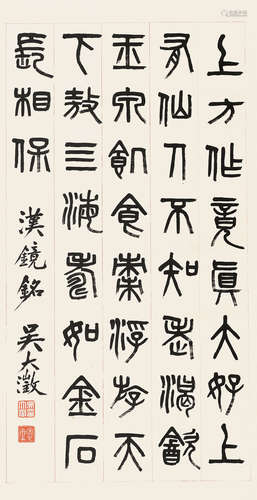 上方作竟真大好上
有仙人不知老渴飲
玉泉飢食棗浮游天
下敖四海壽如金石
長相保
漢鏡銘 吳大澂